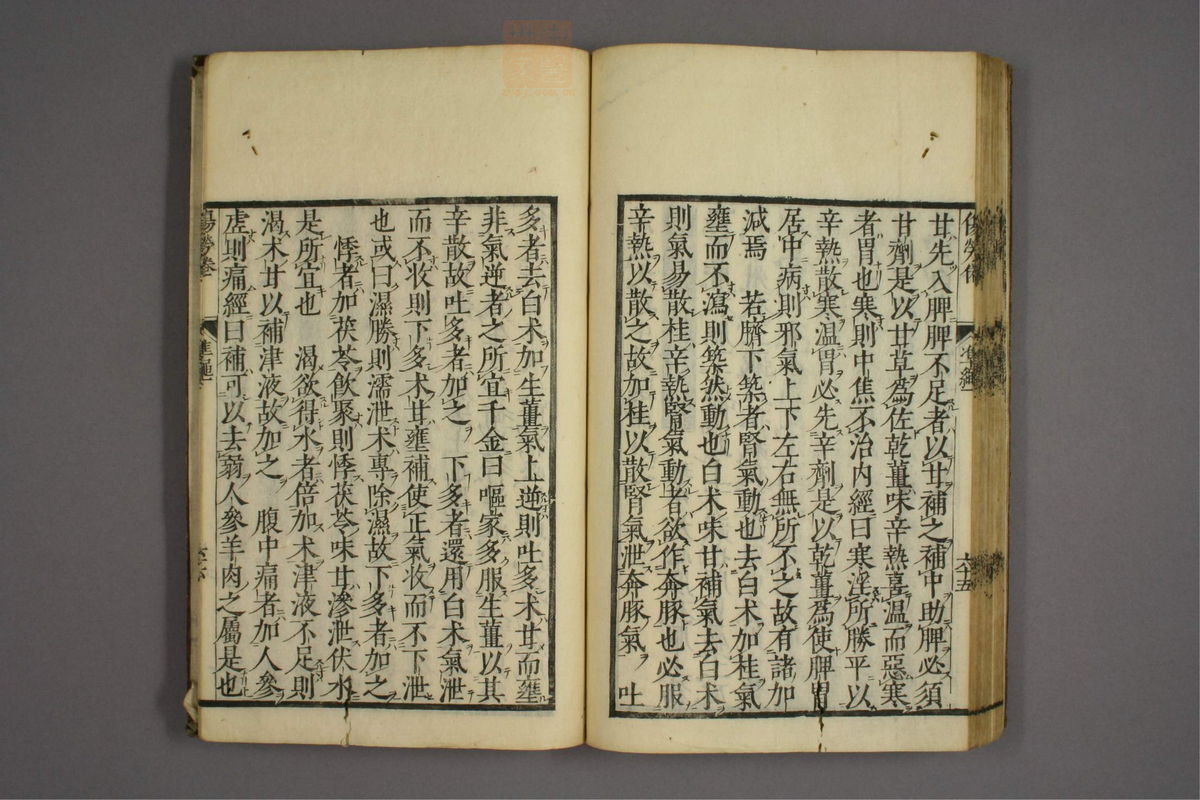 甘先入脾脾不足者以甘補之補中助脾必須
甘劑是以甘草爲佐乾薑味辛熱喜溫而惡寒
者胃也寒則中焦不治内經曰寒淫所勝平以
辛熱散寒溫胃必先辛劑是以乾薑爲使脾胃
居中病則邪氣上下左右無所不之故有諸加
減焉　若臍下築者腎氣動也去白朮加桂氣
壅而不瀉則築然動也白朮味甘補氣去白朮
則氣易散桂辛熱腎氣動者欲作奔豚也必服
辛熱以散之故加桂以散腎氣泄奔豚氣　吐
多者去白朮加生薑氣上逆則吐多朮甘而壅
非氣逆者之所宜千金曰嘔家多服生薑以其
辛散故吐多者加之　下多者還用白朮氣泄
而不收則下多朮甘壅補使正氣收而不下泄
也或曰濕勝則濡泄朮專除濕故下多者加之
悸者加茯苓飮聚則悸茯苓味甘滲泄伏水
是所宜也　渴欲得水者倍加朮津液不足則
渴朮甘以補津液故加之　腹中痛者加人參
虛則痛經曰補可以去弱人參羊肉之屬是也